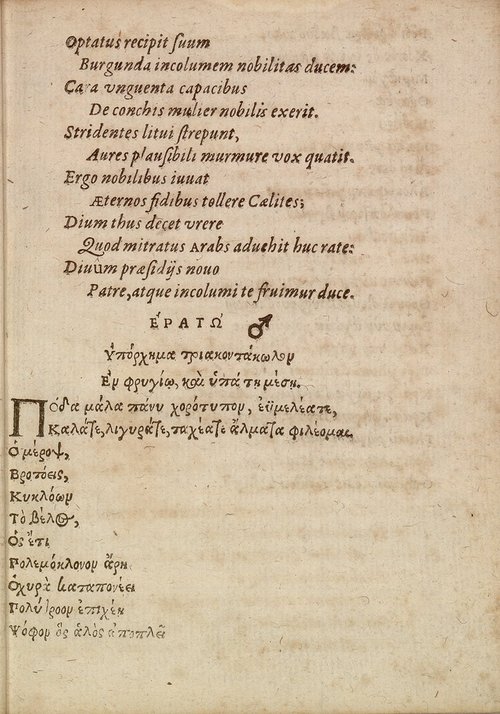 Optatus recipit ſuum
Burgunda incolumem nobilitas ducem:
Cara vnguenta capacibus
De conchis mulier nobilis exerit.
Stridentes litui ſtrepunt,
Aures plauſibili murmure vox quatit.
Ergo nobilibus iuuat
Æternos fidibus tollere Cælites;
Dium thus decet vrere
Quod mitratus Arabs aduehit huc rate:
Diuûm præſidijs nouo
Patre, atque incolumi te fruimur duce.
ΕΡΑΤΩ ♂
Ὑπόρχημα τριακοντάκωλον
Ἐν φρυγίῳ, καὶ ὑπάτῃ μέσῃ.
Πόδα μάλα πάνυ χορότυπον, εὐμελέατε,
Καλᾶτε, λιγυρᾶτε, ταχέατε ἅλματα φιλέομαι.
Ὁ μέροψ,
Βροτόεις,
Κυκλόων
Τὸ βέλος,
Ὃς ἔτι
Πολεμόκλονον ἄρη
Ὀχυρὰ καταπονέει
Πολύῤῥοον
Ψόφον ὃς ἁλὸς